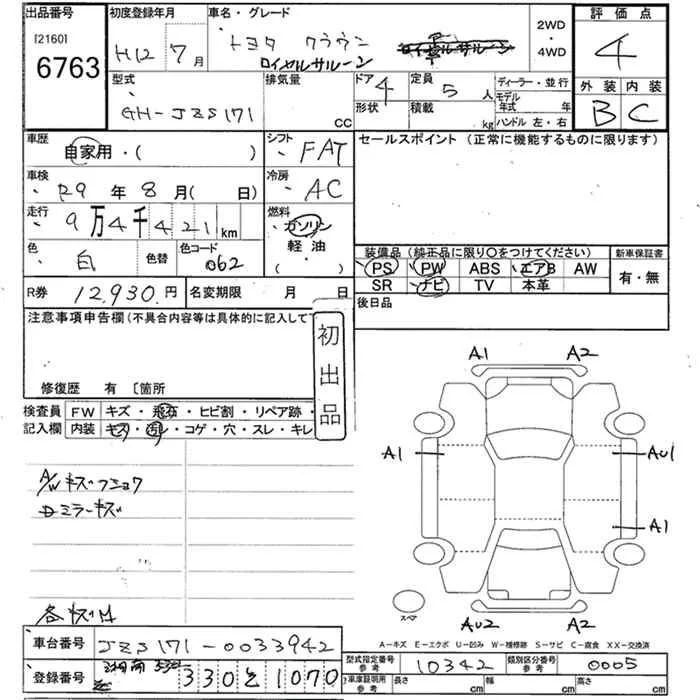 出品番号 初度登録年月 車名・グレード 2WD・4WD 評価点
[2160] 6763 H12 7月 トヨタ クラウン ロイヤルサルーン 4
型式 排気量 CC ドア 4 定員 5人 ディーラー・並行 外装 内装
GH-JZS171 形状 積載 kg モデル年式 年 ハンドル 左・右 B C
車歴 自家用・( ) シフト FAT セールスポイント(正常に機能するものに限ります)
車検 R9年8月( 日) 冷房 AC
走行 9万4千421km 燃料 ガソリン 軽油 ( )
色 白 色替 色コード 062 装備品(純正品に限り○をつけてください) 新車保証書
PS PW ABS エアB AW 有・無
R券 12,930円 名変期限 月 日 SR ナビ TV 本革
注意事項申告欄(不具合内容等は具体的に記入して下 後日品
初出品
修復歴 有 〔箇所
検査員 FW キズ・飛石・ヒビ割・リペア跡・
記入欄 内装 キズ・汚レ・コゲ・穴・スレ・キレ
A1 A2
A/Wキズフショク A1 AU1
Dミラーキズ A1
スペア
各キズ凹 AU2 A2
A-キズ E-エクボ U-凹み W-補修跡 S-サビ C-腐食 XX-交換済
車台番号 JZS171-0033942
型式指定番号 参考 10342 類別区分番号 参考 0005
登録番号 湘南 330 と 1070
車庫証明用 参考 長さ cm 幅 cm 高さ cm